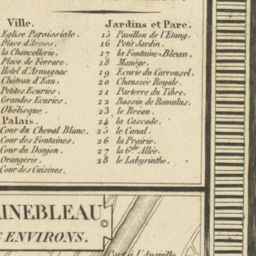 Ville.
Eglise Paroissiale.
Place d'Armes.
la Chancellerie.
Place de Ferrare.
Hotel d'Armagnac
Château d'Eau.
Petites Ecuries.
Grandes Ecuries.
Obélisque.
Palais.
Cour du Cheval Blanc.
Cour des Fontaines.
Cour du Donjon
Orangerie.
Cour des Cuisines.
Jardins et Parc.
15 Pavillon de l'Etang.
16 Petit Jardin.
17 la Fontaine-Bleau.
18 Manège.
19 Ecurie du Carrousel.
20 Chaussée Royale.
21 Parterre du Tibre.
22 Bassin de Romulus.
23 le Breau.
24 la Cascade.
25 le Canal.
26 la Prairie.
27 la 6me Allée.
28 le Labyrinthe.
INEBLEAU
ENVIRONS.